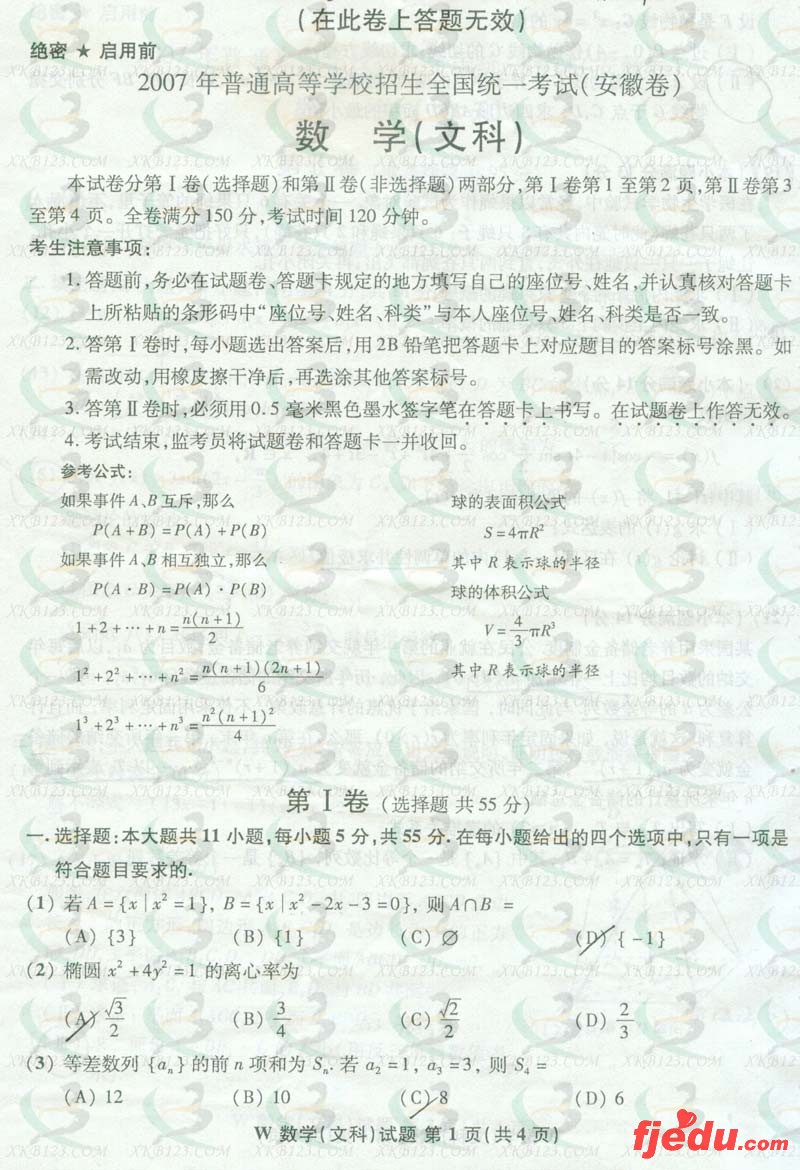 (在此卷上答题无效)
绝密 ★ 启用前
2007 年普通高等学校招生全国统一考试(安徽卷)
数 学(文科)
本试卷分第Ⅰ卷(选择题)和第Ⅱ卷(非选择题)两部分,第Ⅰ卷第1 至第2 页,第Ⅱ卷第3
至第4 页。全卷满分150 分,考试时间120 分钟。
考生注意事项:
1. 答题前,务必在试题卷、答题卡规定的地方填写自己的座位号、姓名,并认真核对答题卡
上所粘贴的条形码中“座位号、姓名、科类”与本人座位号、姓名、科类是否一致。
2. 答第Ⅰ卷时,每小题选出答案后,用2B 铅笔把答题卡上对应题目的答案标号涂黑。如
需改动,用橡皮擦干净后,再选涂其他答案标号。
3. 答第Ⅱ卷时,必须用0.5 毫米黑色墨水签字笔在答题卡上书写。在试题卷上作答无效。
4. 考试结束,监考员将试题卷和答题卡一并收回。
参考公式:
如果事件A、B 互斥,那么 球的表面积公式
P(A+B)=P(A)+P(B) S=4πR²
如果事件A、B 相互独立,那么 其中R 表示球的半径
P(A·B)=P(A)·P(B) 球的体积公式
1+2+⋯+n=n(n+1)/2 V=4/3 πR³
1²+2²+⋯+n²=n(n+1)(2n+1)/6 其中R 表示球的半径
1³+2³+⋯+n³=n²(n+1)²/4
第Ⅰ卷(选择题 共55 分)
一. 选择题:本大题共11 小题,每小题5 分,共55 分. 在每小题给出的四个选项中,只有一项是
符合题目要求的.
(1) 若A={x|x²=1}, B={x|x²-2x-3=0}, 则A∩B =
(A) {3} (B) {1} (C) ∅ (D) {-1}
(2) 椭圆x²+4y²=1 的离心率为
(A) √3/2 (B) 3/4 (C) √2/2 (D) 2/3
(3) 等差数列{aₙ}的前n 项和为Sₙ. 若a₂=1, a₃=3, 则S₄=
(A) 12 (B) 10 (C) 8 (D) 6
W 数学(文科)试题 第1 页(共4 页)
fjedu.com
XKB123.COM